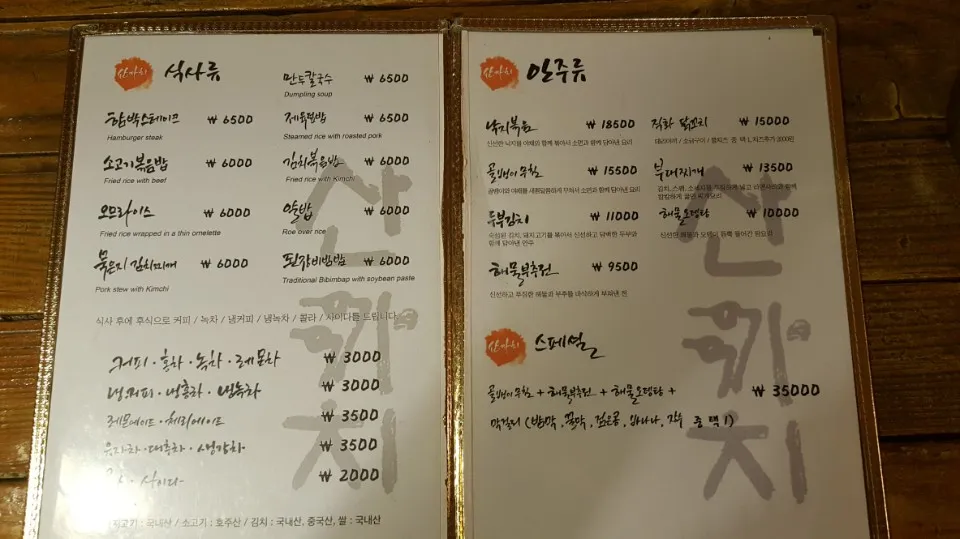 산까치
식사류
함박스테이크 ₩ 6500
Hamburger steak
소고기볶음밥 ₩ 6000
Fried rice with beef
오므라이스 ₩ 6000
Fried rice wrapped in a thin omelette
묵은지 김치찌개 ₩ 6000
Pork stew with Kimchi
만두칼국수 ₩ 6500
Dumpling soup
제육덮밥 ₩ 6500
Steamed rice with roasted pork
김치볶음밥 ₩ 6000
Fried rice with Kimchi
알밥 ₩ 6000
Roe over rice
된장비빔밥 ₩ 6000
Traditional Bibimbap with soybean paste
식사 후에 후식으로 커피 / 녹차 / 냉커피 / 냉녹차 / 콜라 / 사이다를 드립니다.
커피 · 홍차 · 녹차 · 레몬차 ₩ 3000
냉커피 · 냉홍차 · 냉녹차 ₩ 3000
레몬에이드 · 체리에이드 ₩ 3500
유자차 · 대추차 · 생강차 ₩ 3500
· 사이다 ₩ 2000
지고기 : 국내산 / 소고기 : 호주산 / 김치 : 국내산, 중국산, 쌀 : 국내산
산까치
안주류
낙지볶음 ₩ 18500
신선한 낙지를 야채와 함께 볶아서 소면과 함께 담아낸 요리
골뱅이무침 ₩ 15500
골뱅이와 야채를 새콤달콤하게 무쳐서 소면과 함께 담아낸 요리
두부김치 ₩ 11000
숙성된 김치, 돼지고기를 볶아서 신선하고 담백한 두부와
함께 담아낸 안주
해물부추전 ₩ 9500
신선하고 푸짐한 해물과 부추를 바삭하게 부쳐낸 전
직화 닭꼬리 ₩ 15000
부대찌개 ₩ 13500
김치, 스팸, 소세지를 넣고 라면사리와 함께
해물오뎅탕 ₩ 10000
산까치
스페셜
골뱅이무침 + 해물부추전 + 해물오뎅탕 + ₩ 35000
막걸리 (밤막, 꿀막, 검은콩, 바나나, 자수 중 택 1)
산까치